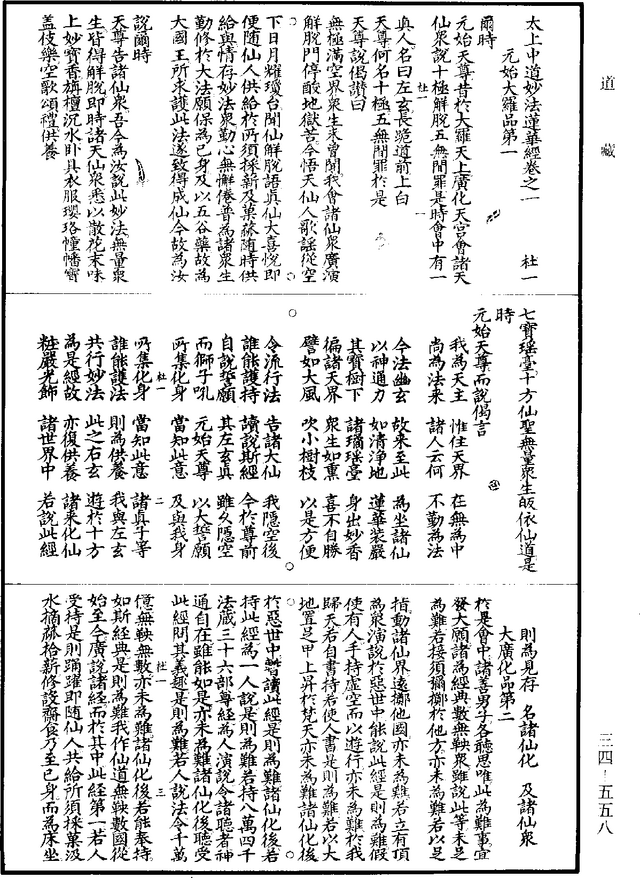 道藏
太上中道妙法蓮華經卷之一 杜一
元始大羅品第一
爾時
元始天尊昔於大羅天上廣化天宮會諸天
仙衆說十極解脫五無間罪是時會中有一
杜一 一
真人名曰左玄長跪道前上白
天尊何名十極五無間罪於是
天尊說偈讚曰
無極滿空界衆生來曾聞我會諸仙衆廣演
解脫門停酸地獄苦令悟天仙人歌謡從空
下日月耀瓊臺聞仙解脫語真仙大喜悅即
便隨仙人供給於所須採薪及菓蓏隨時供
給與情存妙法衆勤心無懈倦普為諸衆生
勤修於大法願保為已身及以五谷藥故為
大國王所求護此法遂致得成仙今故為汝
說爾時
天尊告諸仙衆吾今為汝說此妙法無量衆
生皆得解脫即時諸天仙衆悉以散花末味
上妙寶香旃檀沉水卧具衣服瓔珞幢幡寶
蓋伎樂空歌頌禮供養
七寶瑤臺十方仙聖無量衆生皈依仙道是
時
元始天尊而說偈言
我為天主 惟住天界 在無為中
尚為法來 諸人云何 不勤為法
今法幽玄 故來至此 為坐諸仙
以神通力 如清淨地 蓮華裝嚴
其寶樹下 諸璚瑤臺 身出妙香
徧諸天界 衆生如熏 喜不自勝
譬如大風 吹小樹枝 以是方便
令流行法 告諸大仙 我隱空後
誰能護持 讀說斯經 今於尊前
自說誓願 其左玄真 雖久隱空
而獅子吼 元始天尊 以大誓願
所集化身 當知此意 及與我身
杜一 二
所集化身 當知此意 諸真子等
誰能護法 則為供養 我與左玄
共行妙法 此之右玄 遊於十方
為是經故 亦復供養 諸來化仙
粧嚴光飾 諸世界中 若說此經
則為見存 名諸仙化 及諸仙衆
大廣化品第二
於是會中諸善男子各聽思唯此為難事宜
發大願諸為經典數無鞅衆雖說此等未足
為難若接須獮擲於他方亦未為難若以足
指動諸仙界遠擲他國亦未為難若立有頂
為衆演說於惡世中能說此經是則為難假
使有人手持虛空而以遊行亦未為難於我
歸天若自書持若使人書是則為難若以大
地置足甲上昇於梵天亦未為難諸仙化後
於惡世中暫讀此經是則為難諸仙化後若
持此經為一人說是則為難若持八萬四千
法藏三十六部尊經為人演說令諸聽者神
通自在雖能如是亦未為難諸仙化後聽受
此經問其義趣是則為難若人說法令千萬
杜一 三
億無鞅無數亦未為難諸仙化後若能奉持
如斯經典是則為難我作仙道無鞅數國從
始至今廣說諸經而於其中此經第一若人
受持是則踊躍即隨仙人共給所須採菓汲
水摘蓏拾薪修設齋食乃至已身而為床坐
三四—五五八